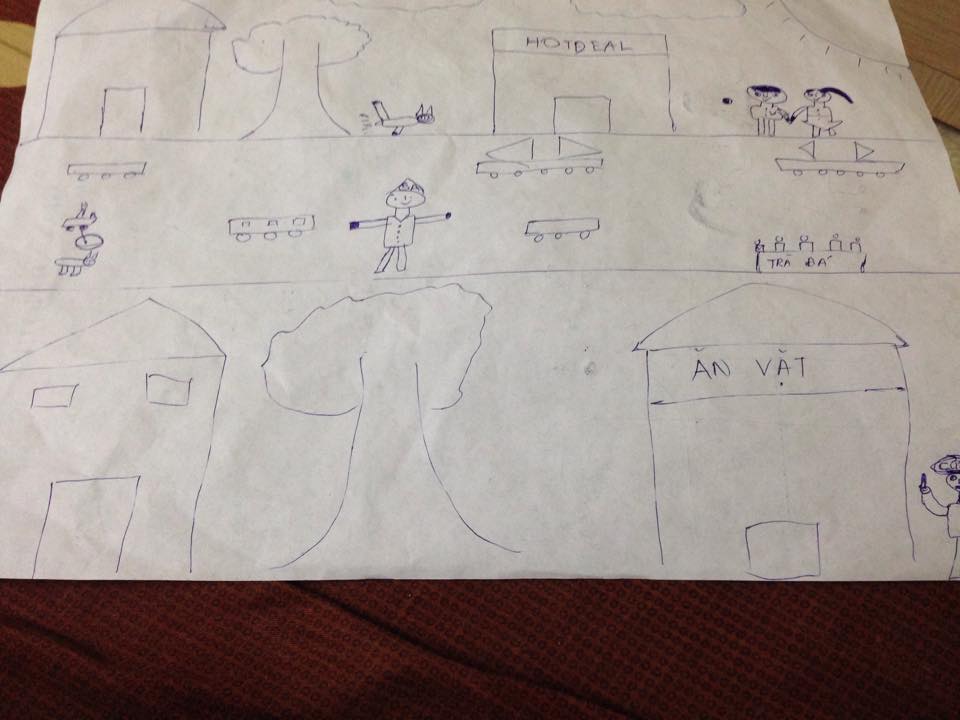 HOTDEAL
TRÀ ĐÁ
ĂN VẶT